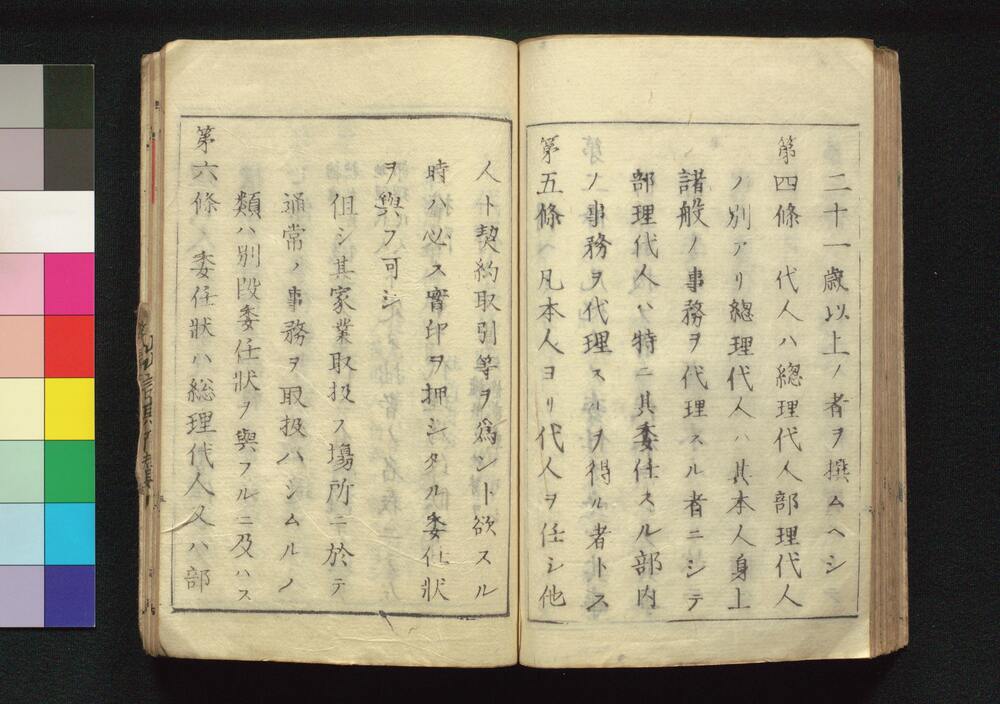 二十一歳以上ノ者ヲ撰ムヘシ
第四條 代人ハ總理代人部理代人
ノ別アリ總理代人ハ其本人身上
諸般ノ事務ヲ代理スル者ニシテ
部理代人ハ特ニ其委任スル部内
ノ事務ヲ代理スルヲ得ル者トス
第五條 凡本人ヨリ代人ヲ任シ他
人ト契約取引等ヲ為ント欲スル
時ハ必ス實印ヲ押シタル委任状
ヲ與フ可シ
但シ其家業取扱フ場所ニ於テ
通常ノ事務ヲ取扱ハシムルノ
類ハ別段委任状ヲ與フルニ及ハス
第六條 委任状ハ総理代人又ハ部